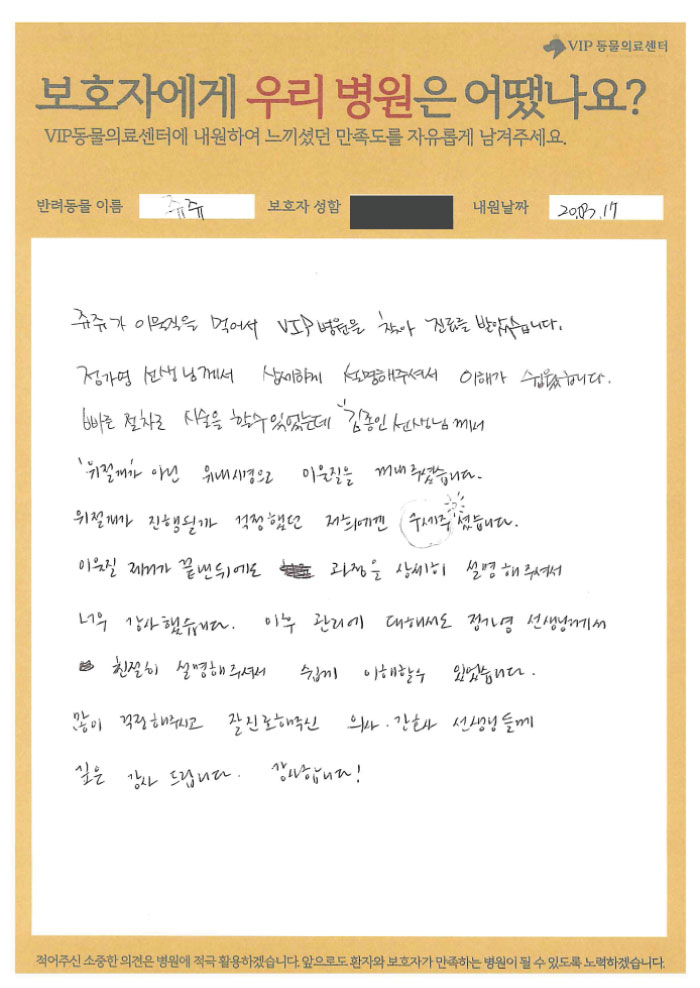 VIP 동물의료센터
보호자에게 우리 병원은 어땠나요?
VIP동물의료센터에 내원하여 느끼셨던 만족도를 자유롭게 남겨주세요.
반려동물 이름 쥬쥬 보호자 성함 내원날짜 20.03.17
쥬쥬가 이물직을 먹어서 VIP병원을 찾아 진료를 받았습니다.
정가영 선생님께서 상세하게 설명해주셔서 이해가 쉬웠습니다.
빠른 절차로 시술을 할수있었는데 "김종인 선생님께서
'위절개'가 아닌 위내시경으로 이물질을 꺼내주셨습니다.
위절개가 진행될까 걱정했던 저희에겐 구세주셨습니다.
이물질 제거가 끝난뒤에도 과정을 상세히 설명해주셔서
너무 감사했습니다. 이후 관리에 대해서도 정가영 선생님께서
친절히 설명해주셔서 쉽게 이해할수 있었습니다.
많이 걱정해주시고 잘진료해주신 의사·간호사 선생님들께
깊은 감사 드립니다. 감사합니다!
적어주신 소중한 의견은 병원에 적극 활용하겠습니다. 앞으로도 환자와 보호자가 만족하는 병원이 될 수 있도록 노력하겠습니다.